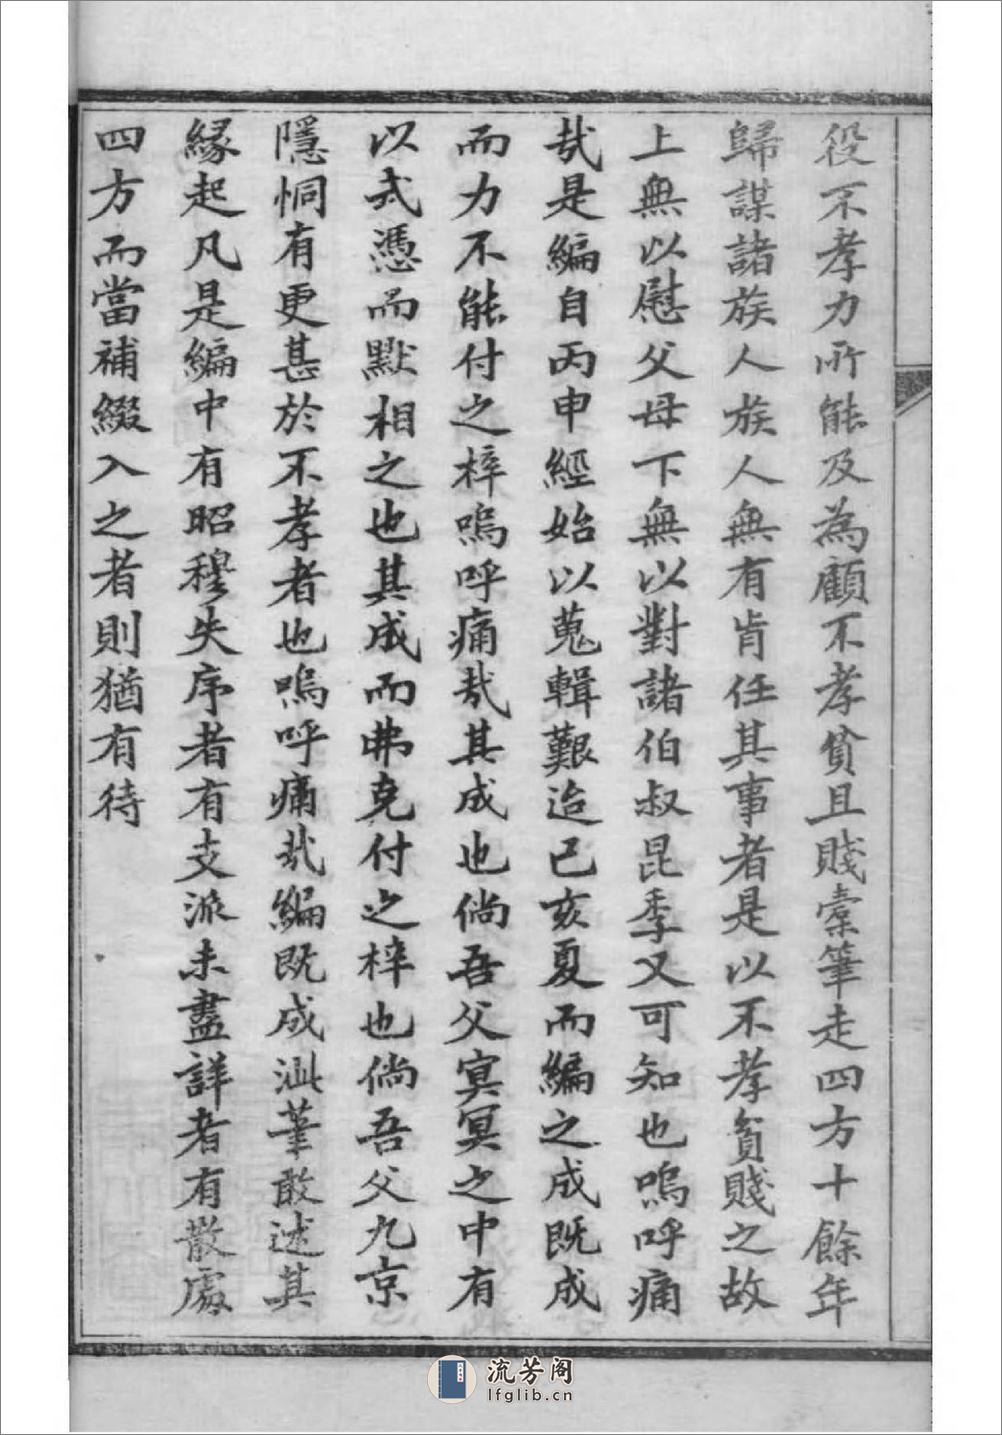 役不孝力所能及為顧不孝貧且賤橐筆走四方十餘年
歸謀諸族人族人無有肯任其事者是以不孝貧賤之故
上無以慰父母下無以對諸伯叔昆季又可知也嗚呼痛
哉是編自丙申經始以蒐輯艱迨己亥夏而編之成既成
而力不能付之梓嗚呼痛哉其成也倘吾父冥冥之中有
以式憑而默相之也其成而弗克付之梓也倘吾父九京
隱恫有更甚於不孝者也嗚呼痛哉編既成汕筆敢述其
緣起凡是編中有昭穆失序者有支派未盡詳者有散處
四方而當補綴入之者則猶有待
流芳阁
lfglib.cn